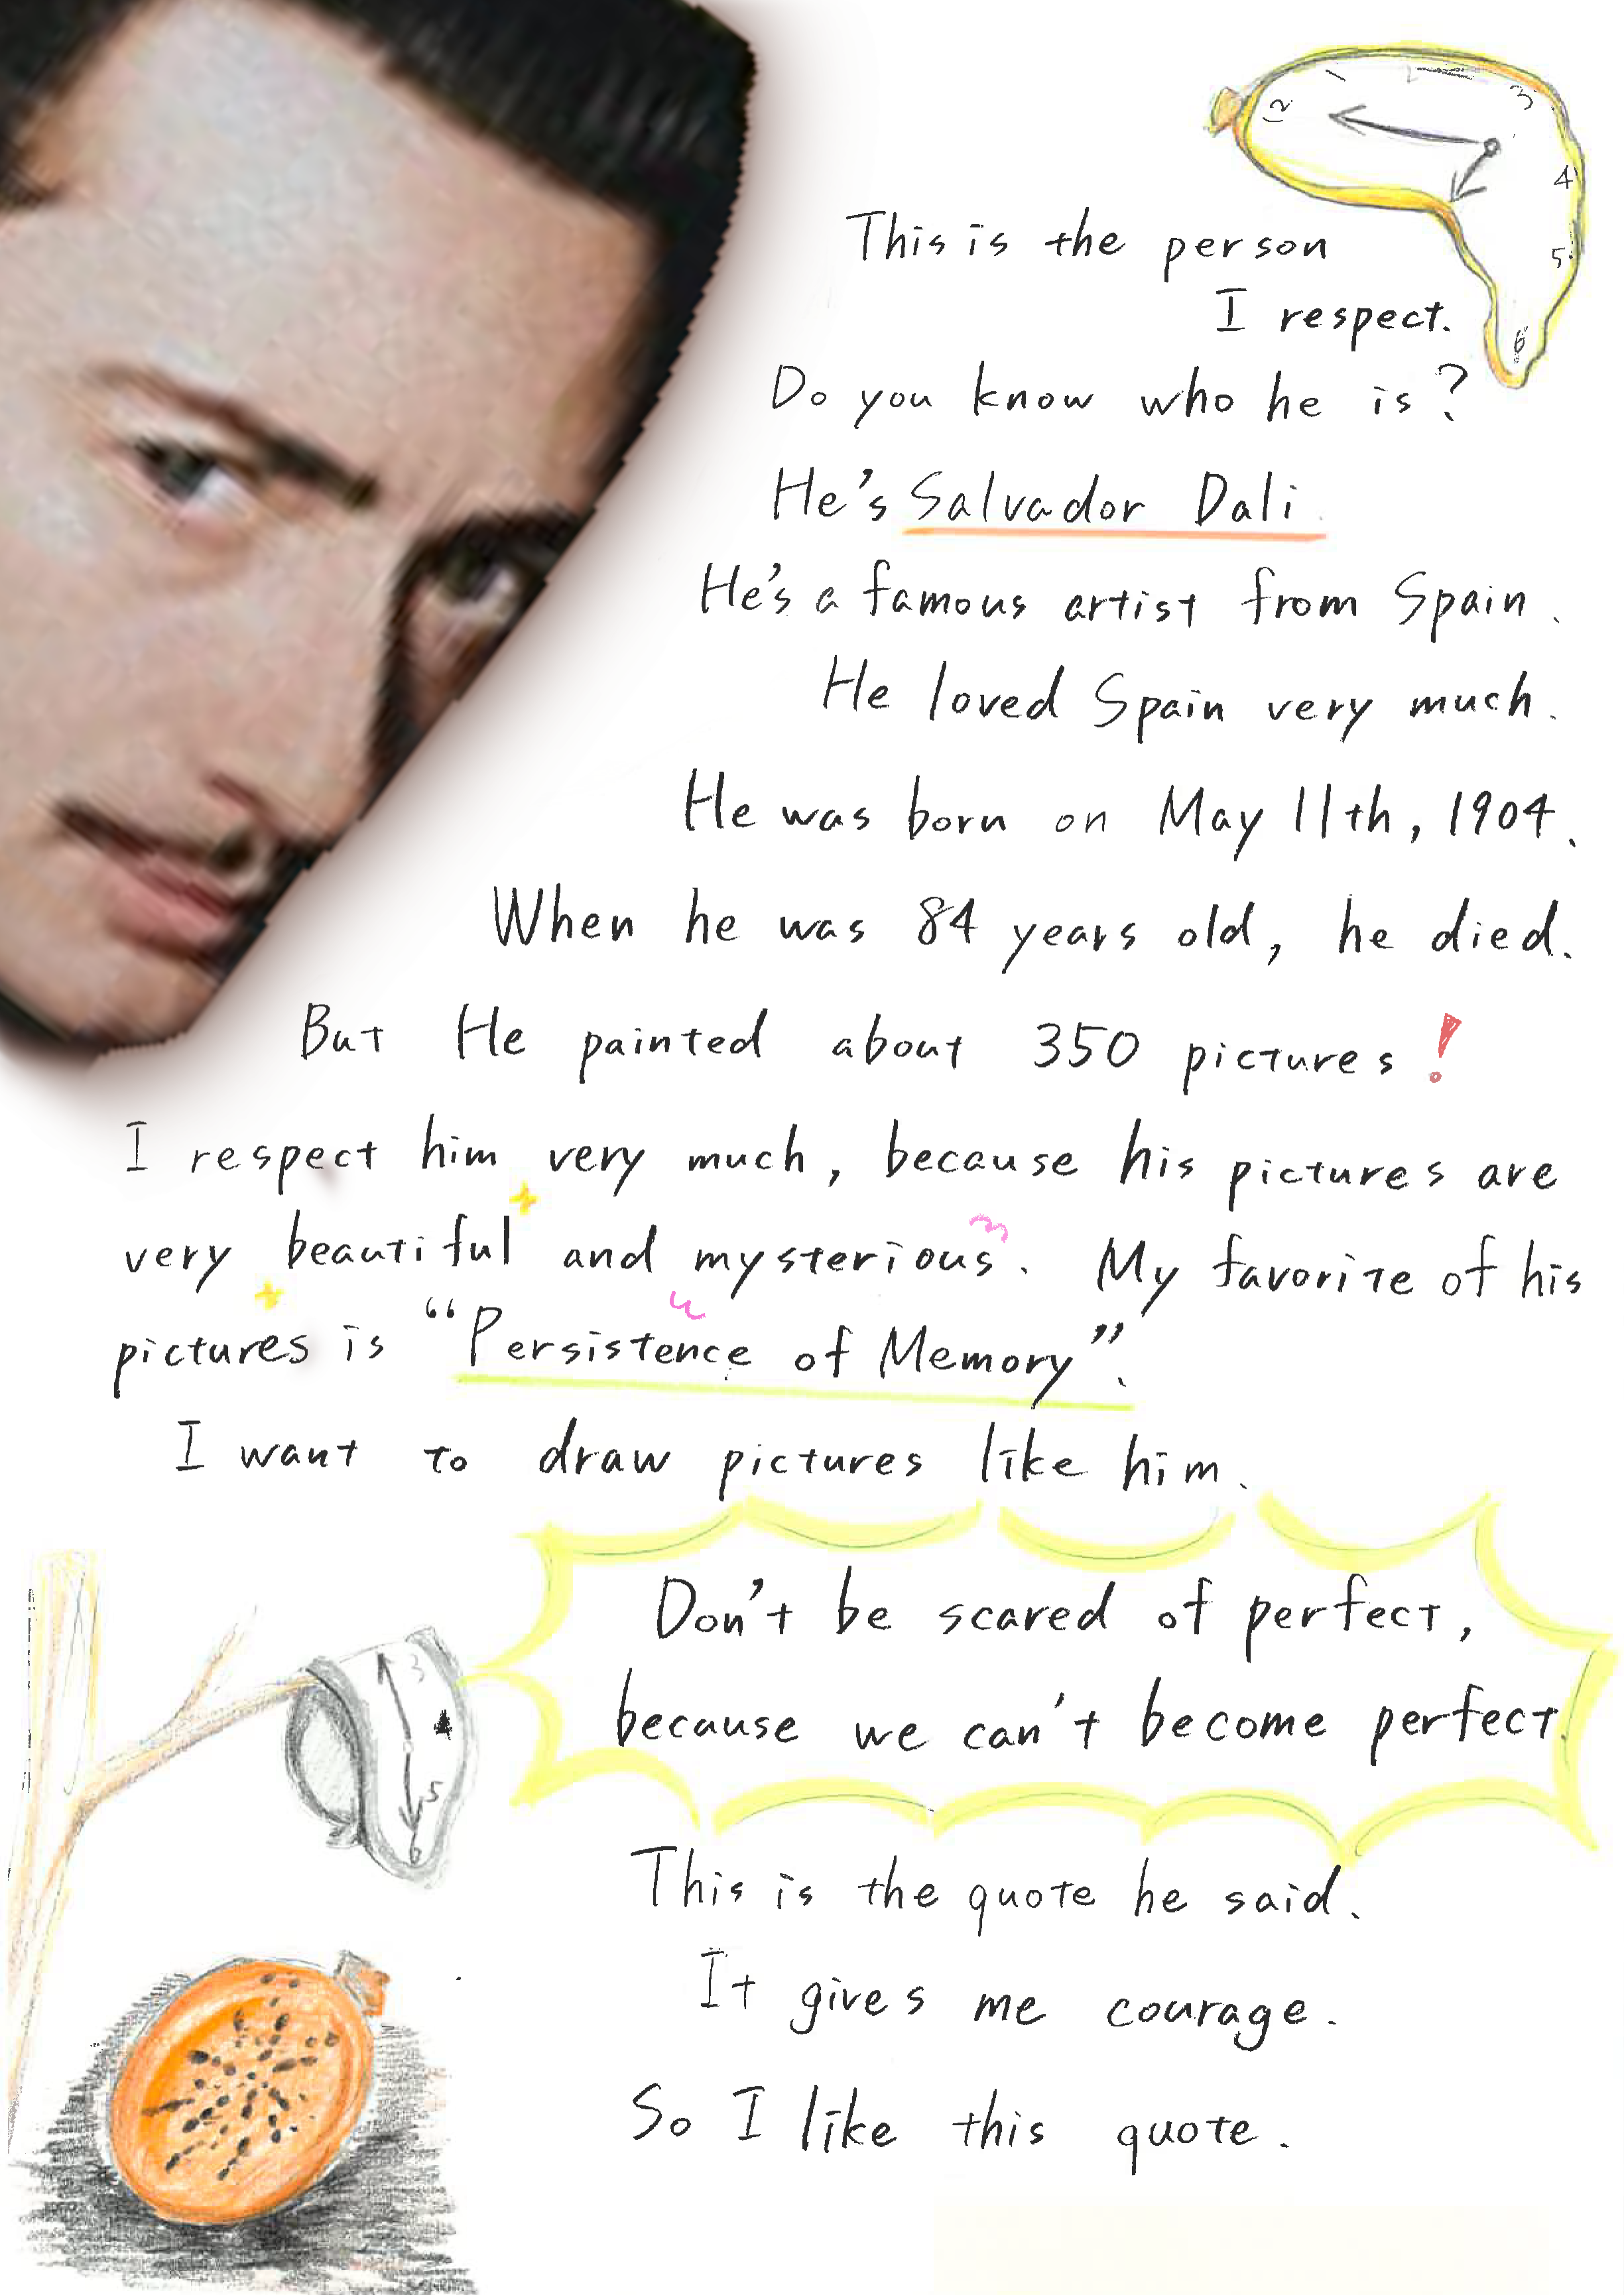 This is the person
I respect.
Do you know who he is?
He's Salvador Dali.
He's a famous artist from Spain.
He loved Spain very much.
He was born on May 11th, 1904.
When he was 84 years old, he died.
But He painted about 350 pictures!
I respect him very much, because his pictures are
very beautiful and mysterious. My favorite of his
pictures is “Persistence of Memory”.
I want to draw pictures like him.
Don't be scared of perfect,
because we can't become perfect.
This is the quote he said.
It gives me courage.
So I like this quote.
12 3
4
5
6
3
4
5
6